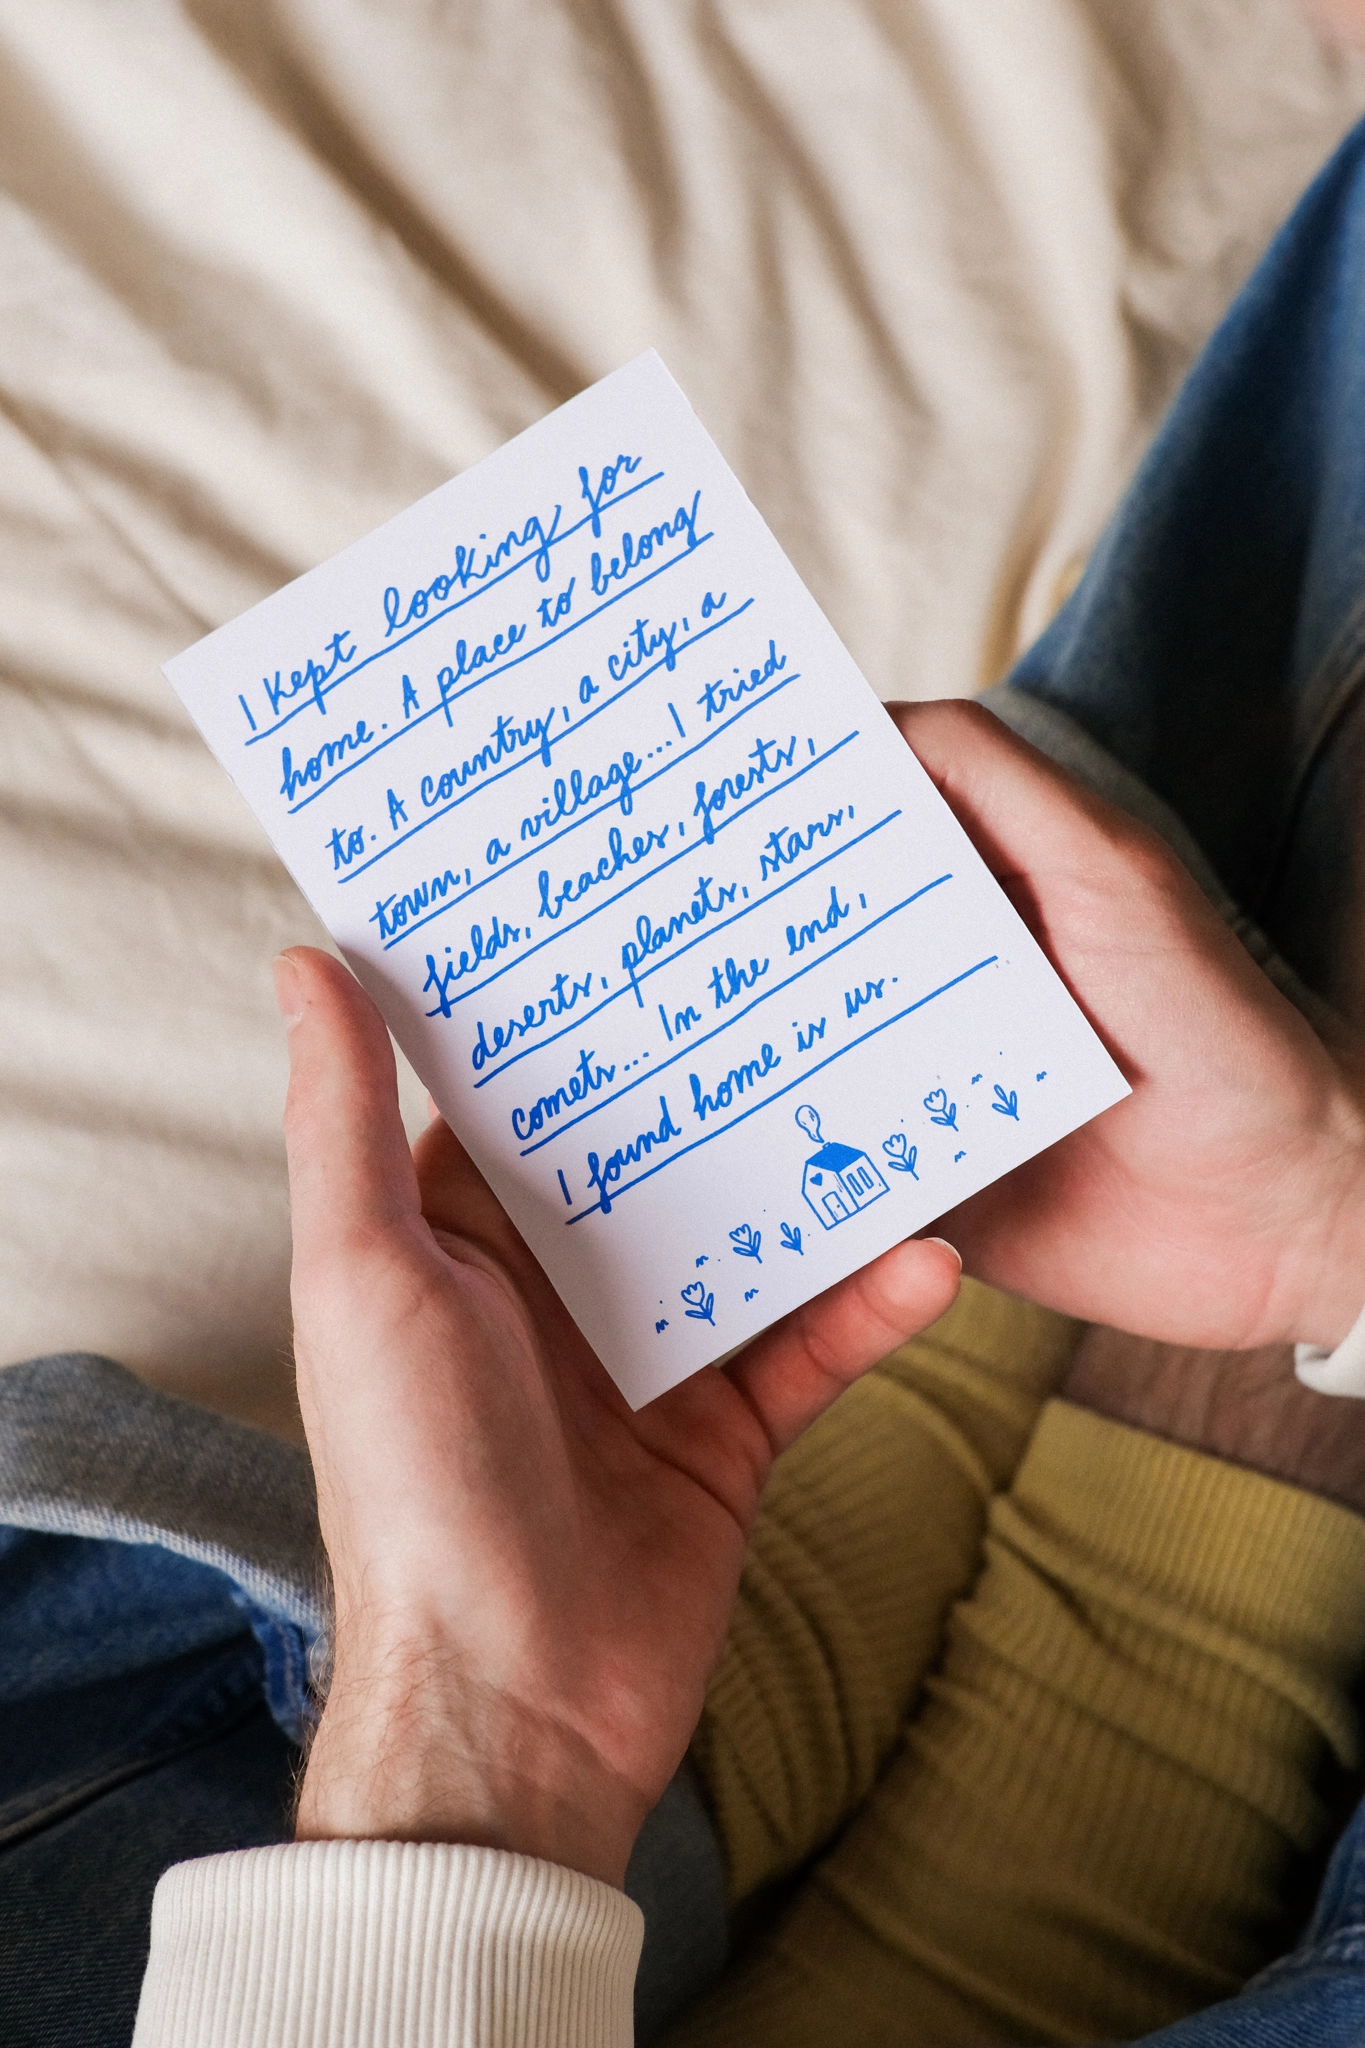 I kept looking for
home. A place to belong
to. A country, a city, a
town, a village...I tried
fields, beaches, forests,
deserts, planets, stars,
comets... In the end,
I found home is us.